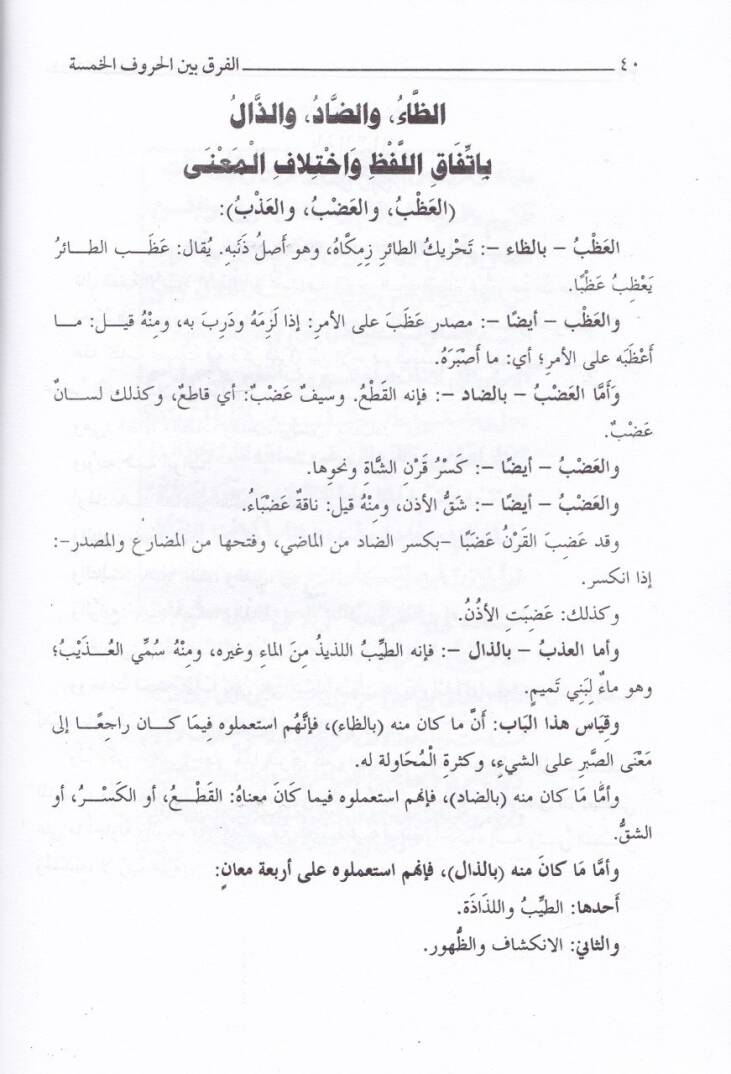 ٤٠ ـــــــــــــــــــــــــــــــــــــــــ الفرق بين الحروف الخمسة
الظَّاءُ، والضَّادُ، والذَّالُ
بِاتِّفَاقِ اللَّفْظِ وَاخْتِلافِ الْمَعْنَى
(العَظْبُ، والعَضْبُ، والعَذْبُ):
العَظْبُ – بالظاء –: تَحْريكُ الطائرِ زِمِكَّاهُ، وهو أَصلُ ذَنَبه. يُقال: عَظَب الطائرُ
يَعْظِبُ عَظْبًا.
والعَظْب – أيضًا –: مصدر عَظَبَ على الأمرِ: إذا لَزِمَهُ ودَرِبَ به، ومنْهُ قيل: ما
أَعْظَبَه على الأمرِ؛ أي: ما أَصْبَرَهُ.
وَأَمَّا العَضْبُ – بالضاد –: فإنه القَطْعُ. وسيفٌ عَضْبٌ: أي قاطعٌ، وكذلك لسانٌ
عَضْبٌ.
والعَضْبُ – أيضًا –: كَسْرُ قَرْنِ الشَّاةِ ونحوِها.
والعَضْبُ – أيضًا –: شَقُّ الأذن، ومنْهُ قيل: ناقةٌ عَضْبَاءُ.
وقد عَضِبَ القَرْنُ عَضَبًا –بكسر الضاد من الماضي، وفتحها من المضارع والمصدر–:
إذا انكسر.
وكذلك: عَضِبَت الأذُنُ.
وأما العذبُ – بالذال –: فإنه الطيِّبُ اللذيذُ مِنَ الماءِ وغيره، ومِنْهُ سُمِّي العُذَيْبُ؛
وهو ماءٌ لبَنِي تَميمٍ.
وقِيَاس هذا البَاب: أنَّ ما كان منه (بالظاء)، فإنَّهُم استعملوه فِيمَا كان راجِعًا إلى
مَعْنَى الصَّبرِ على الشيءِ، وكثرةِ الْمُحَاولة له.
وأمَّا مَا كان منه (بالضاد)، فإنهم استعملوه فيما كَانَ معناهُ: القَطْعُ، أو الكَسْرُ، أو
الشقُّ.
وأمَّا مَا كانَ منه (بالذال)، فإنهم استعملوه على أربعة معانٍ:
أَحدها: الطيِّبُ واللذَاذَة.
والثاني: الانكشاف والظُّهور.